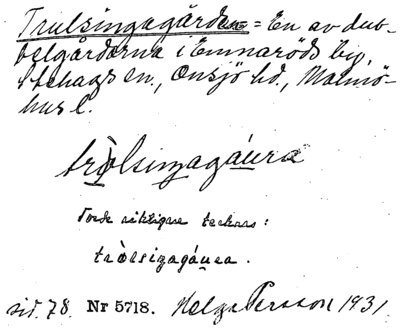 Trulsingagården = En av dub-
belgårdarna i Emmaröds by,
Stehags sn., Onsjö hd., Malmö-
hus l.
tròlsingagáura
Torde riktigare tecknas:
tròlsingagáura.
sid. 78. Nr 5718. Helge Persson 1931.